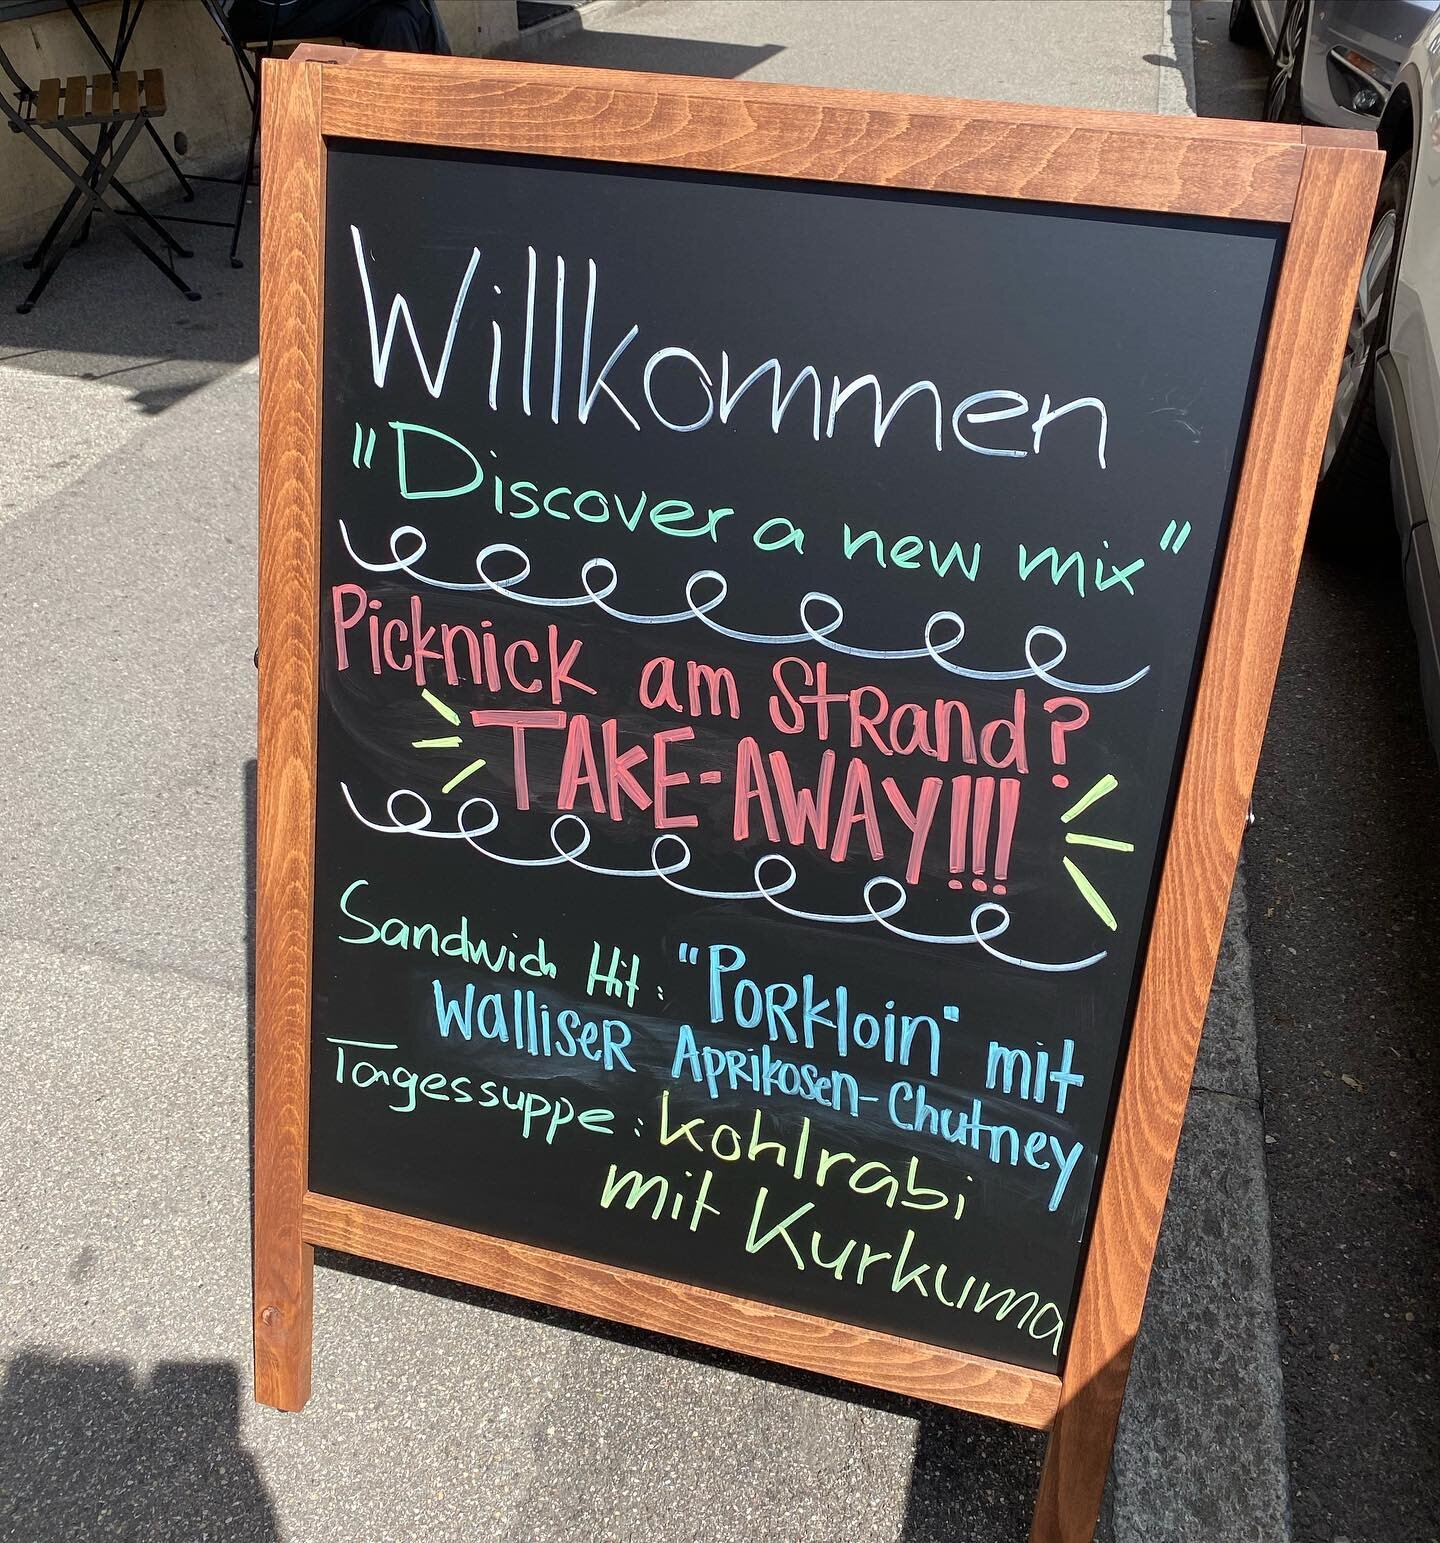 Willkommen
"Discover a new mix"
Picknick am Strand?
TAKE-AWAY!!!
Sandwich Hit: "Porkloin" mit
Walliser Aprikosen-Chutney
Tagessuppe: Kohlrabi
mit Kurkuma